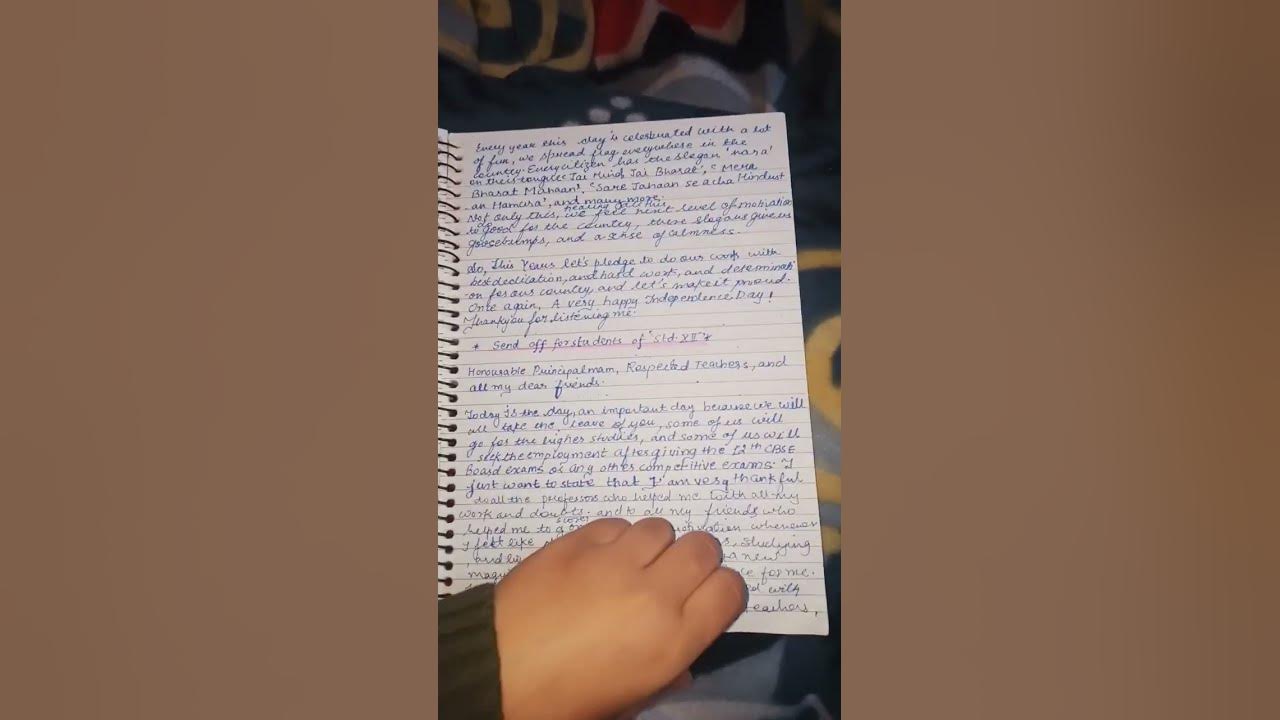 Every year this day is celebrated with a lot
of fun, we spread flag everywhere in the
country. Every citizen has the slogan 'nara'
on their tongue "Jai Hind, Jai Bharat", "Mera
Bharat Mahaan", "Sare Jahaan se acha Hindust
-an Hamara', and many more.
Not only this, hearing all this, we feel next level of motivation
to do good for the country, these slogans give us
goosebumps, and a sense of calmness.
So, This Years let's pledge to do our work with
best dedication, and hard work, and determinati
-on for our country, and let's make it proud.
Once again, A very happy Independence Day!
Thankyou for listening me.
* Send off for students of "Std. XII" *
Honourable Principal mam, Respected Teachers, and
all my dear friends.
Today is the day, an important day because we will
all take the leave of you, some of us will
go for the higher studies, and some of us will
seek the employment after giving the 12th CBSE
Board exams or any other competitive exams. I
just want to state that I am very thankful
to all the professors who helped me with all my
work and doubts. and to all my friends who
helped me to whenever
I felt like studying
and new
for me.
with
teachers,